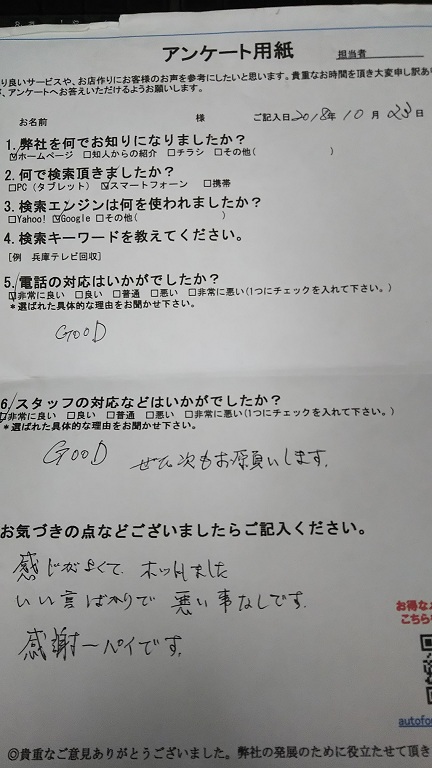 アンケート用紙
担当者
り良いサービスや、お店作りにお客様のお声を参考にしたいと思います。貴重なお時間を頂き大変申し訳あり
が、アンケートへお答えいただけるようお願いします。
お名前 様 ご記入日2018年10月23日
1.弊社を何でお知りになりましたか？
☑ホームページ □知人からの紹介 □チラシ □その他( )
2.何で検索頂きましたか？
□PC(タブレット) ☑スマートフォーン □携帯
3.検索エンジンは何を使われましたか？
□Yahoo! ☑Google □その他( )
4.検索キーワードを教えてください。
[例 兵庫テレビ回収]
5.電話の対応はいかがでしたか？
☑非常に良い □良い □普通 □悪い □非常に悪い(1つにチェックを入れて下さい。)
*選ばれた具体的な理由をお聞かせ下さい。
GOOD
6.スタッフの対応などはいかがでしたか？
☑非常に良い □良い □普通 □悪い □非常に悪い(1つにチェックを入れて下さい。)
*選ばれた具体的な理由をお聞かせ下さい。
GOOD ぜひ次もお願いします。
お気づきの点などございましたらご記入ください。
感じがよくて、ホットしました
いい事ばかりで 悪い事なしです。
感謝一パイです。
お得な
こちら
autofo
◎貴重なご意見ありがとうございました。弊社の発展のために役立たせて頂き